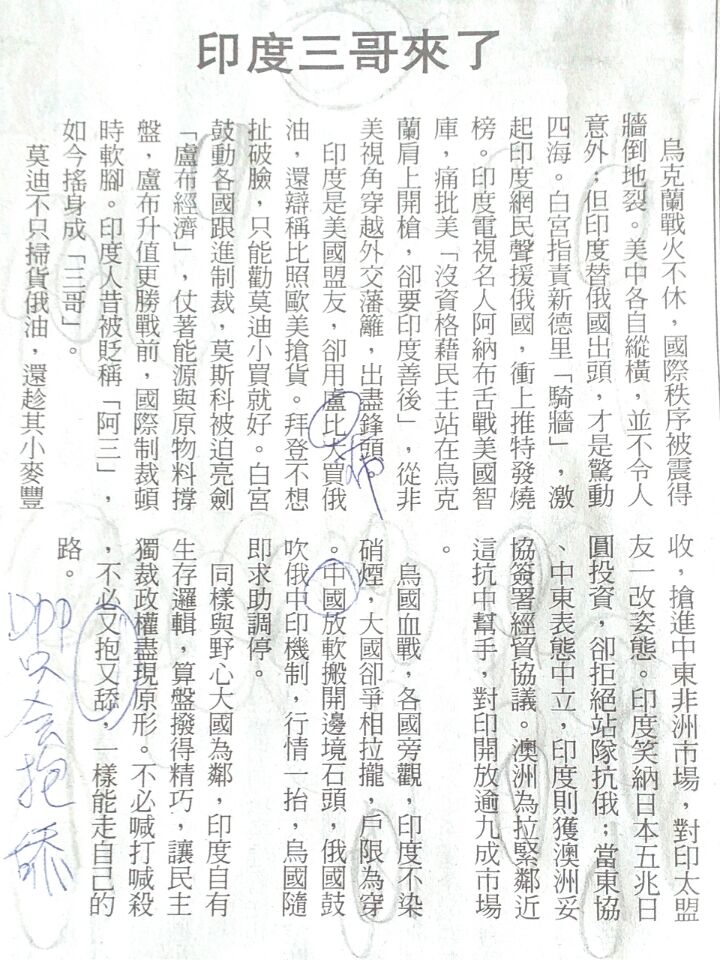 印度三哥來了
烏克蘭戰火不休，國際秩序被震得
牆倒地裂。美中各自縱橫，並不令人
意外；但印度替俄國出頭，才是驚動
四海。白宮指責新德里「騎牆」，激
起印度網民聲援俄國，衝上推特發燒
榜。印度電視名人阿納布舌戰美國智
庫，痛批美「沒資格藉民主站在烏克
蘭肩上開槍，卻要印度善後」，從非
美視角穿越外交藩籬，出盡鋒頭。
印度是美國盟友，卻用盧比大買俄
布
油，還辯稱比照歐美搶貨。拜登不想
扯破臉，只能勸莫迪小買就好。白宮
鼓動各國跟進制裁，莫斯科被迫亮劍
「盧布經濟」，仗著能源與原物料撐
盤，盧布升值更勝戰前，國際制裁頓
時軟腳。印度人昔被貶稱「阿三」，
如今搖身成「三哥」。
莫迪不只掃貨俄油，還趁其小麥豐
收，搶進中東非洲市場，對印太盟
友一改姿態。印度笑納日本五兆日
圓投資，卻拒絕站隊抗俄；當東協
、中東表態中立，印度則獲澳洲妥
協簽署經貿協議。澳洲為拉緊鄰近
這抗中幫手，對印開放逾九成市場
。
烏國血戰，各國旁觀，印度不染
硝煙，大國卻爭相拉攏，戶限為穿
。中國放軟搬開邊境石頭，俄國鼓
吹俄中印機制，行情一抬，烏國隨
即求助調停。
同樣與野心大國為鄰，印度自有
生存邏輯，算盤撥得精巧，讓民主
獨裁政權盡現原形。不必喊打喊殺
，不必又抱又舔，一樣能走自己的
路。
DPP只会抱舔